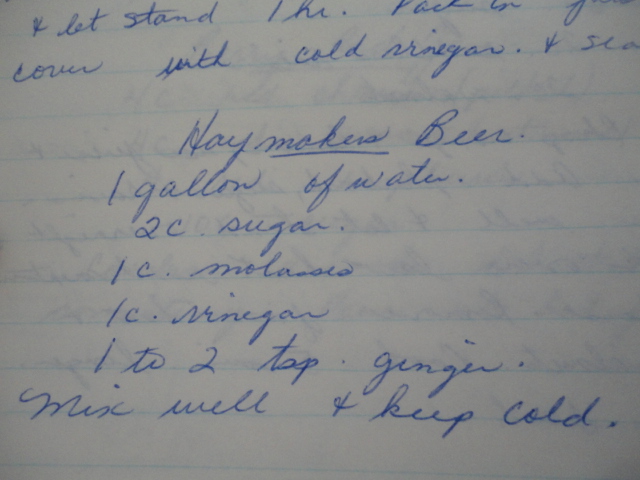 & let stand 1 hr. Pack in
cover with cold vinegar. & sea
Haymakers Beer.
1 gallon of water.
2 c. sugar.
1 c. molasses
1 c. vinegar
1 to 2 tsp. ginger.
Mix well & keep cold.